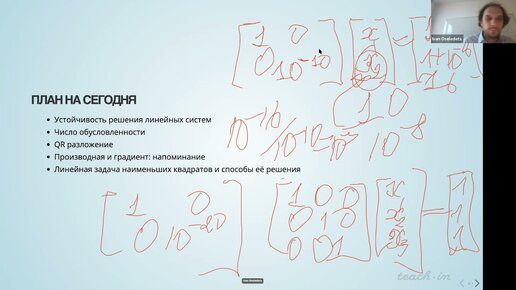 Ivan Oseledets
ПЛАН НА СЕГОДНЯ
Устойчивость решения линейных систем
Число обусловленности
QR разложение
Производная и градиент: напоминание
Линейная задача наименьших квадратов и способы её решения
1 0
0 10⁻¹⁰
x
1 0
10⁻¹⁶
10⁻⁸
1 0
0 10⁻²⁰
1 0 0
0 1 0
0 0 1
x₁
x₂
x₃
=
1
1
1
teach-in
Ivan Oseledets